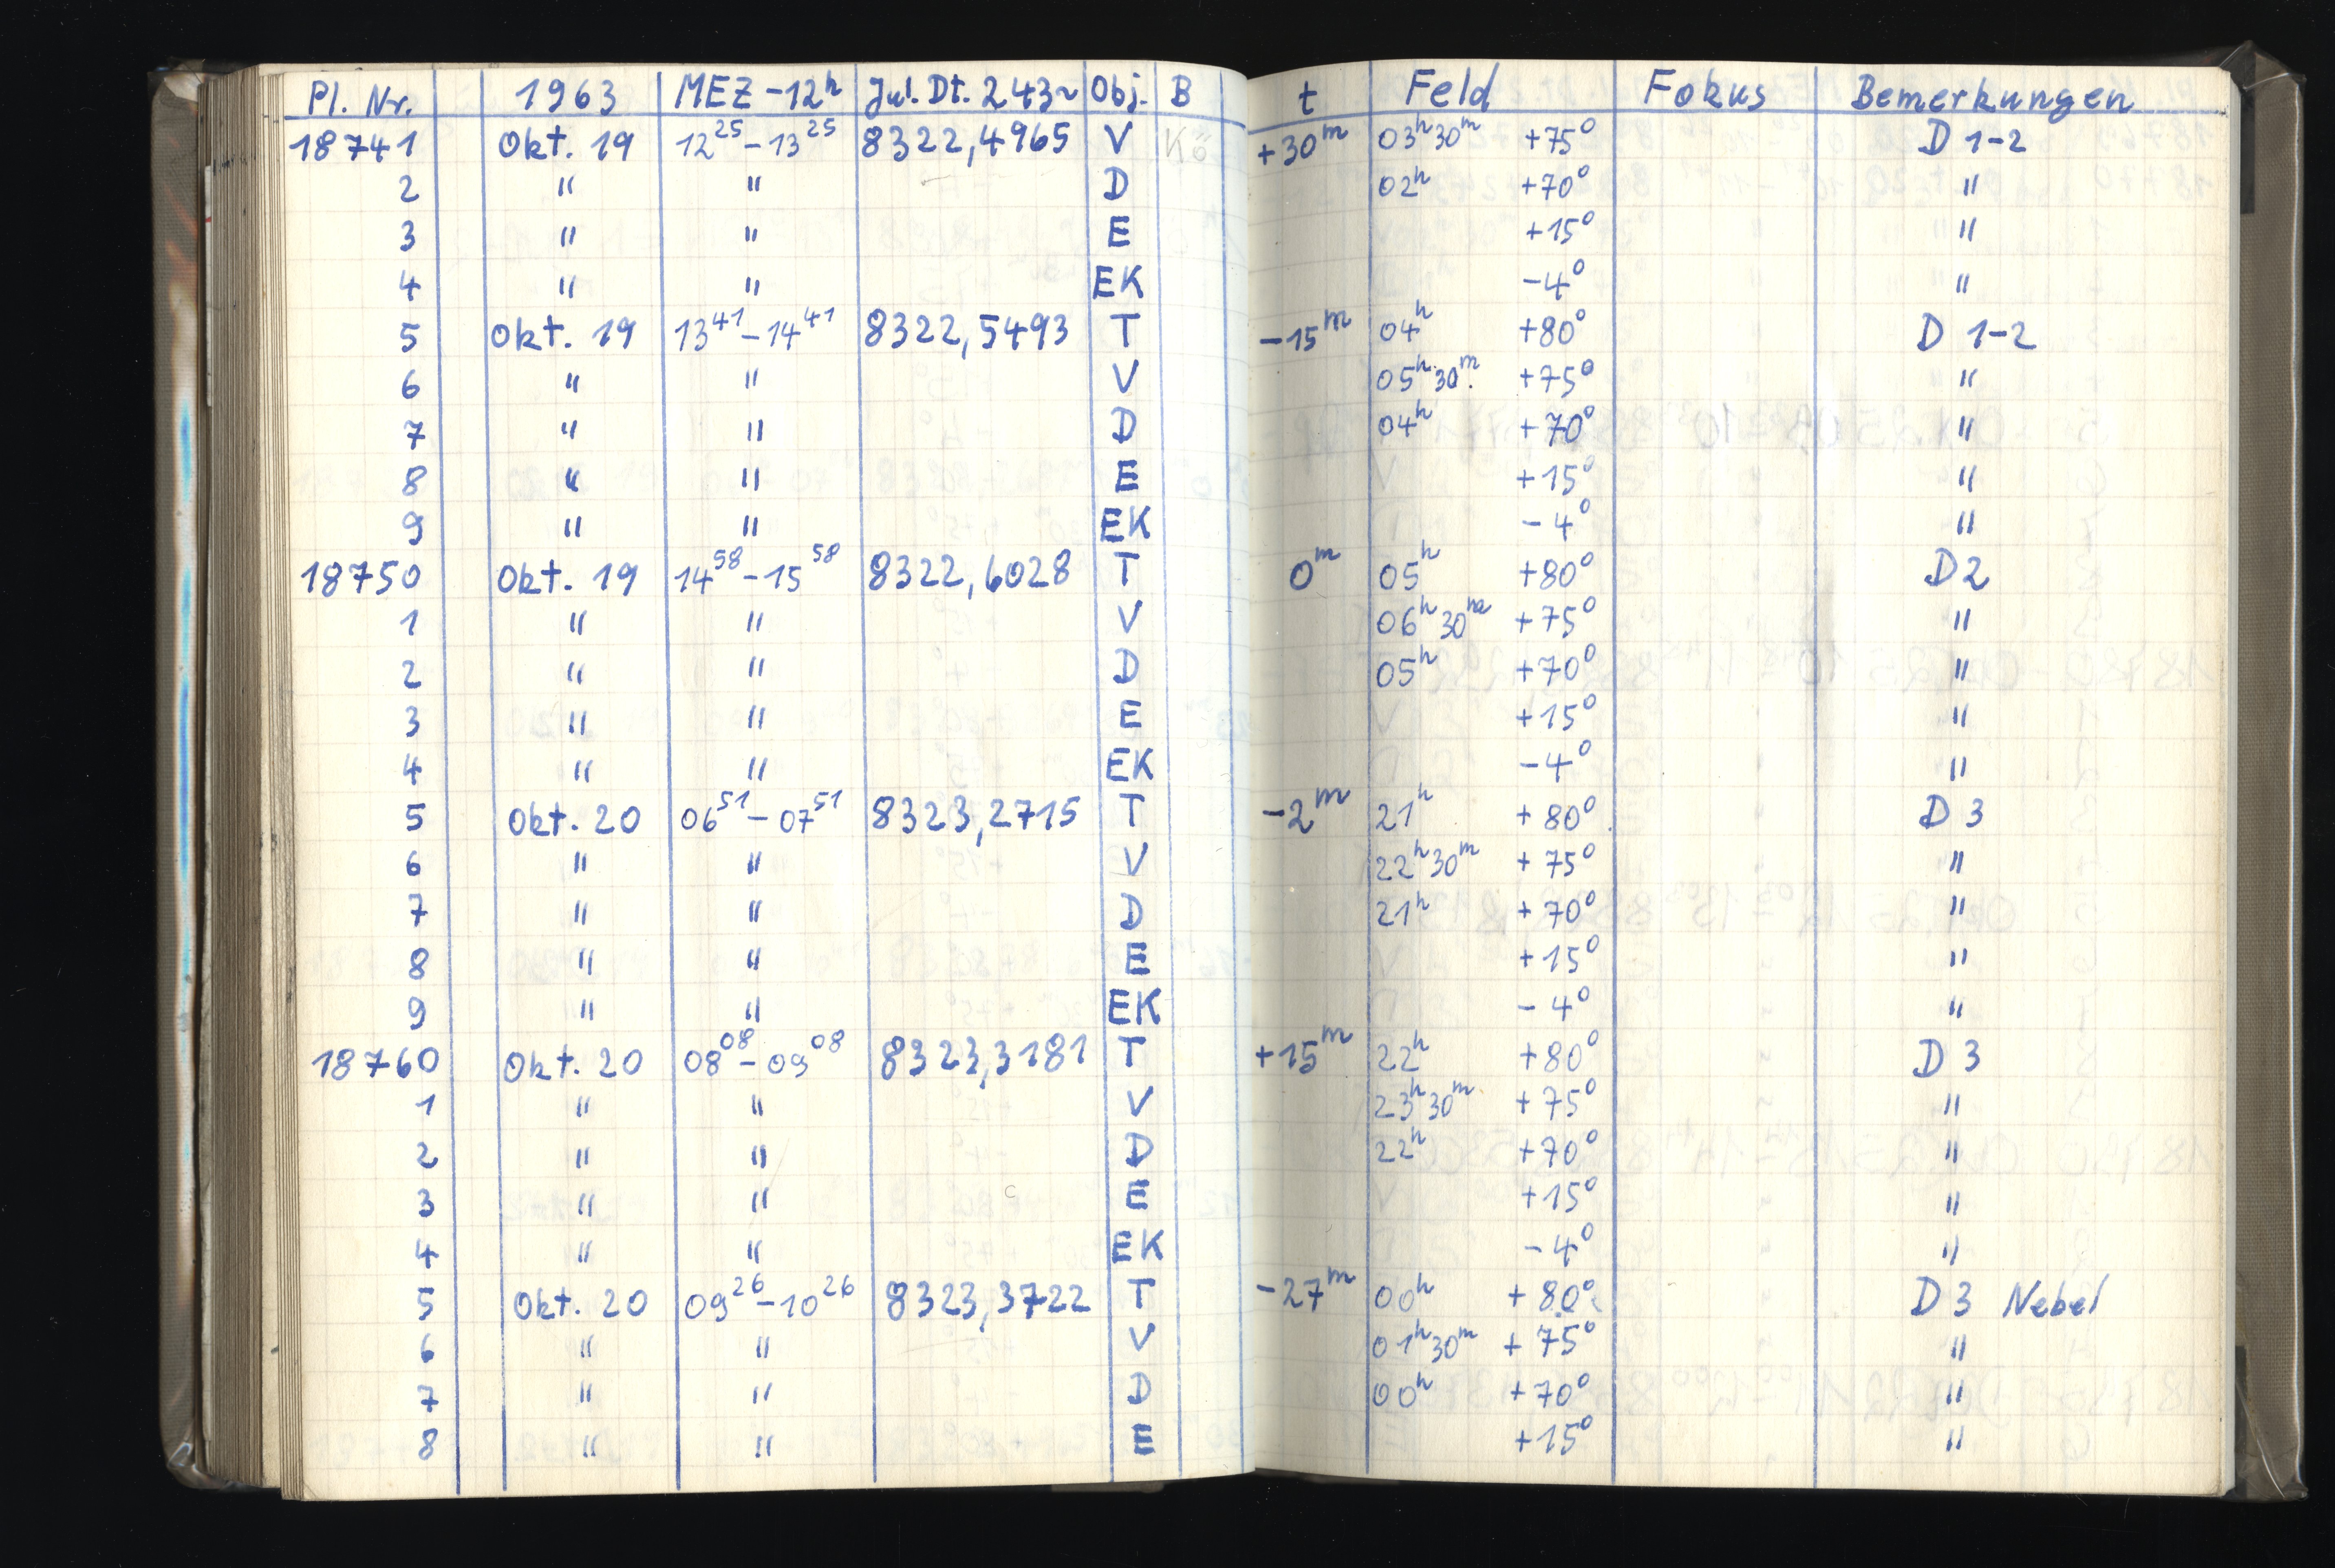 Pl. Nr. 1963 MEZ -12ʰ Jul. Dt. 243~ Obj. B t Feld Fokus Bemerkungen
18741 Okt. 19 12²⁵ - 13²⁵ 8322,4965 V Kö +30ᵐ 03ʰ30ᵐ +75⁰ D 1-2
2 " " D 02ʰ +70⁰ "
3 " " E +15⁰ "
4 " " EK -4⁰ "
5 Okt. 19 13⁴¹ - 14⁴¹ 8322,5493 T -15ᵐ 04ʰ +80⁰ D 1-2
6 " " V 05ʰ30ᵐ +75⁰ "
7 " " D 04ʰ +70⁰ "
8 " " E +15⁰ "
9 " " EK -4⁰ "
18750 Okt. 19 14⁵⁸ - 15⁵⁸ 8322,6028 T 0ᵐ 05ʰ +80⁰ D2
1 " " V 06ʰ30ᵐ +75⁰ "
2 " " D 05ʰ +70⁰ "
3 " " E +15⁰ "
4 " " EK -4⁰ "
5 Okt. 20 06⁵¹ - 07⁵¹ 8323,2715 T -2ᵐ 21ʰ +80⁰ D 3
6 " " V 22ʰ30ᵐ +75⁰ "
7 " " D 21ʰ +70⁰ "
8 " " E +15⁰ "
9 " " EK -4⁰ "
18760 Okt. 20 08⁰⁸ - 09⁰⁸ 8323,3181 T +15ᵐ 22ʰ +80⁰ D 3
1 " " V 23ʰ30ᵐ +75⁰ "
2 " " D 22ʰ +70⁰ "
3 " " E +15⁰ "
4 " " EK -4⁰ "
5 Okt. 20 09²⁶ - 10²⁶ 8323,3722 T -27ᵐ 00ʰ +80⁰ D 3 Nebel
6 " " V 01ʰ30ᵐ +75⁰ "
7 " " D 00ʰ +70⁰ "
8 " " E +15⁰ "